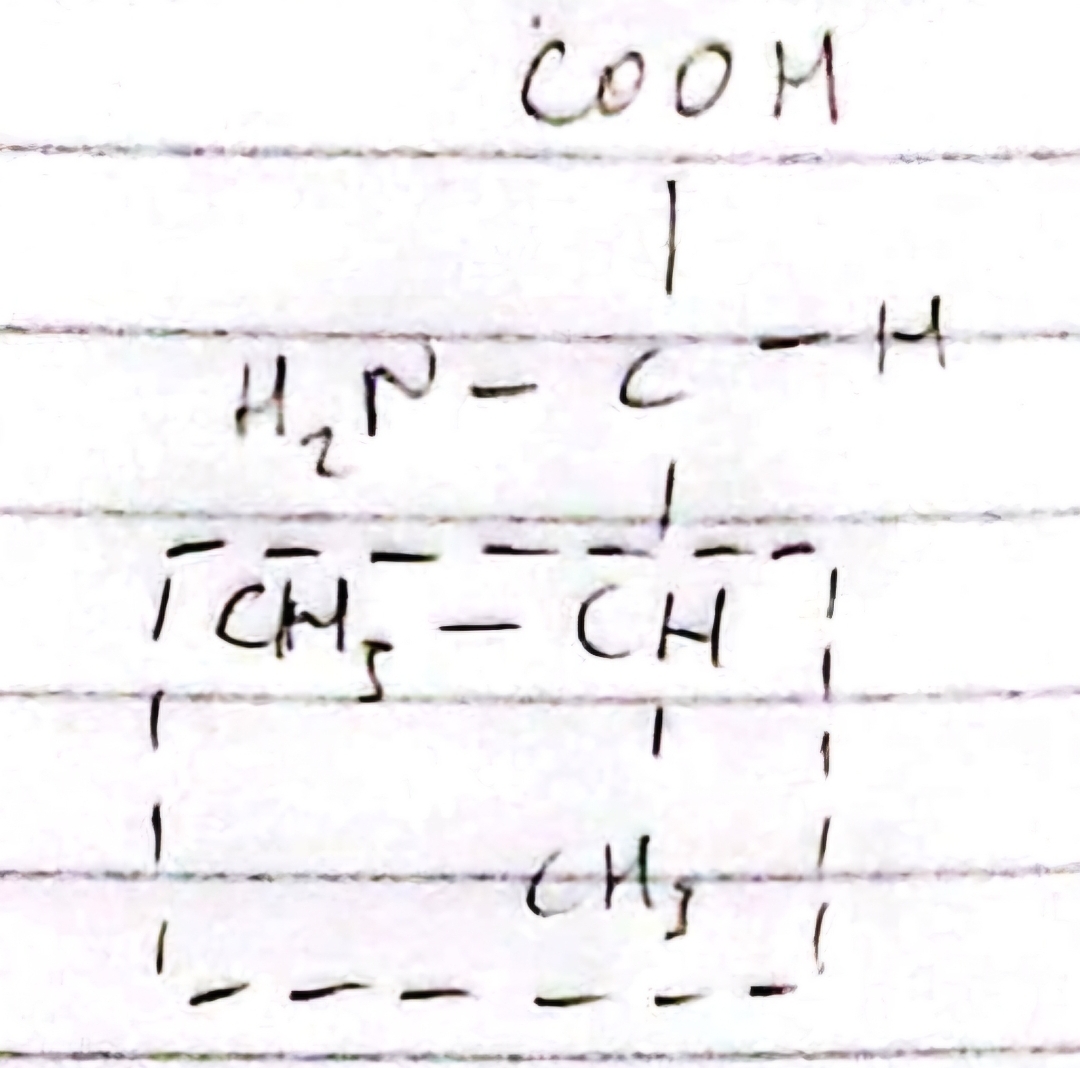 COOH
H₂N – C – H
CH₃ – CH
CH₃